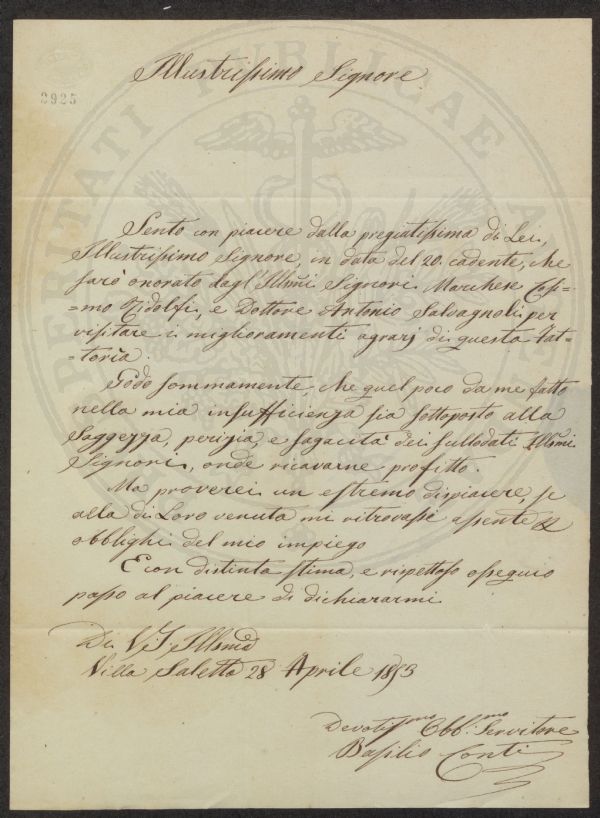 Illustrissimo Signore
2925
Sento con piacere dalla pregiatissima di Lei,
Illustrissimo Signore, in data del 20. cadente, che
sarò onorato dagl'Illmi Signori Marchese Cosi=
=mo Ridolfi, e Dottore Antonio Salvagnoli per
visitare i miglioramenti agrarj di questa Fat=
=toria.
Godo sommamente, che quel poco da me fatto
nella mia insufficienza sia sottoposto alla
Saggezza, perizia, e sagacità dei sullodati Illmi
Signori, onde ricavarne profitto.
Ma proverei un estremo dispiacere, se
alla di Loro venuta mi ritrovassi assente
obblighi del mio impiego
E con distinta stima, e rispettoso ossequio
passo al piacere di dichiararmi
Di V.S. Illma
Villa Saletta 28 Aprile 1853
Devotissmo Obb.mo Servitore
Basilio Conti